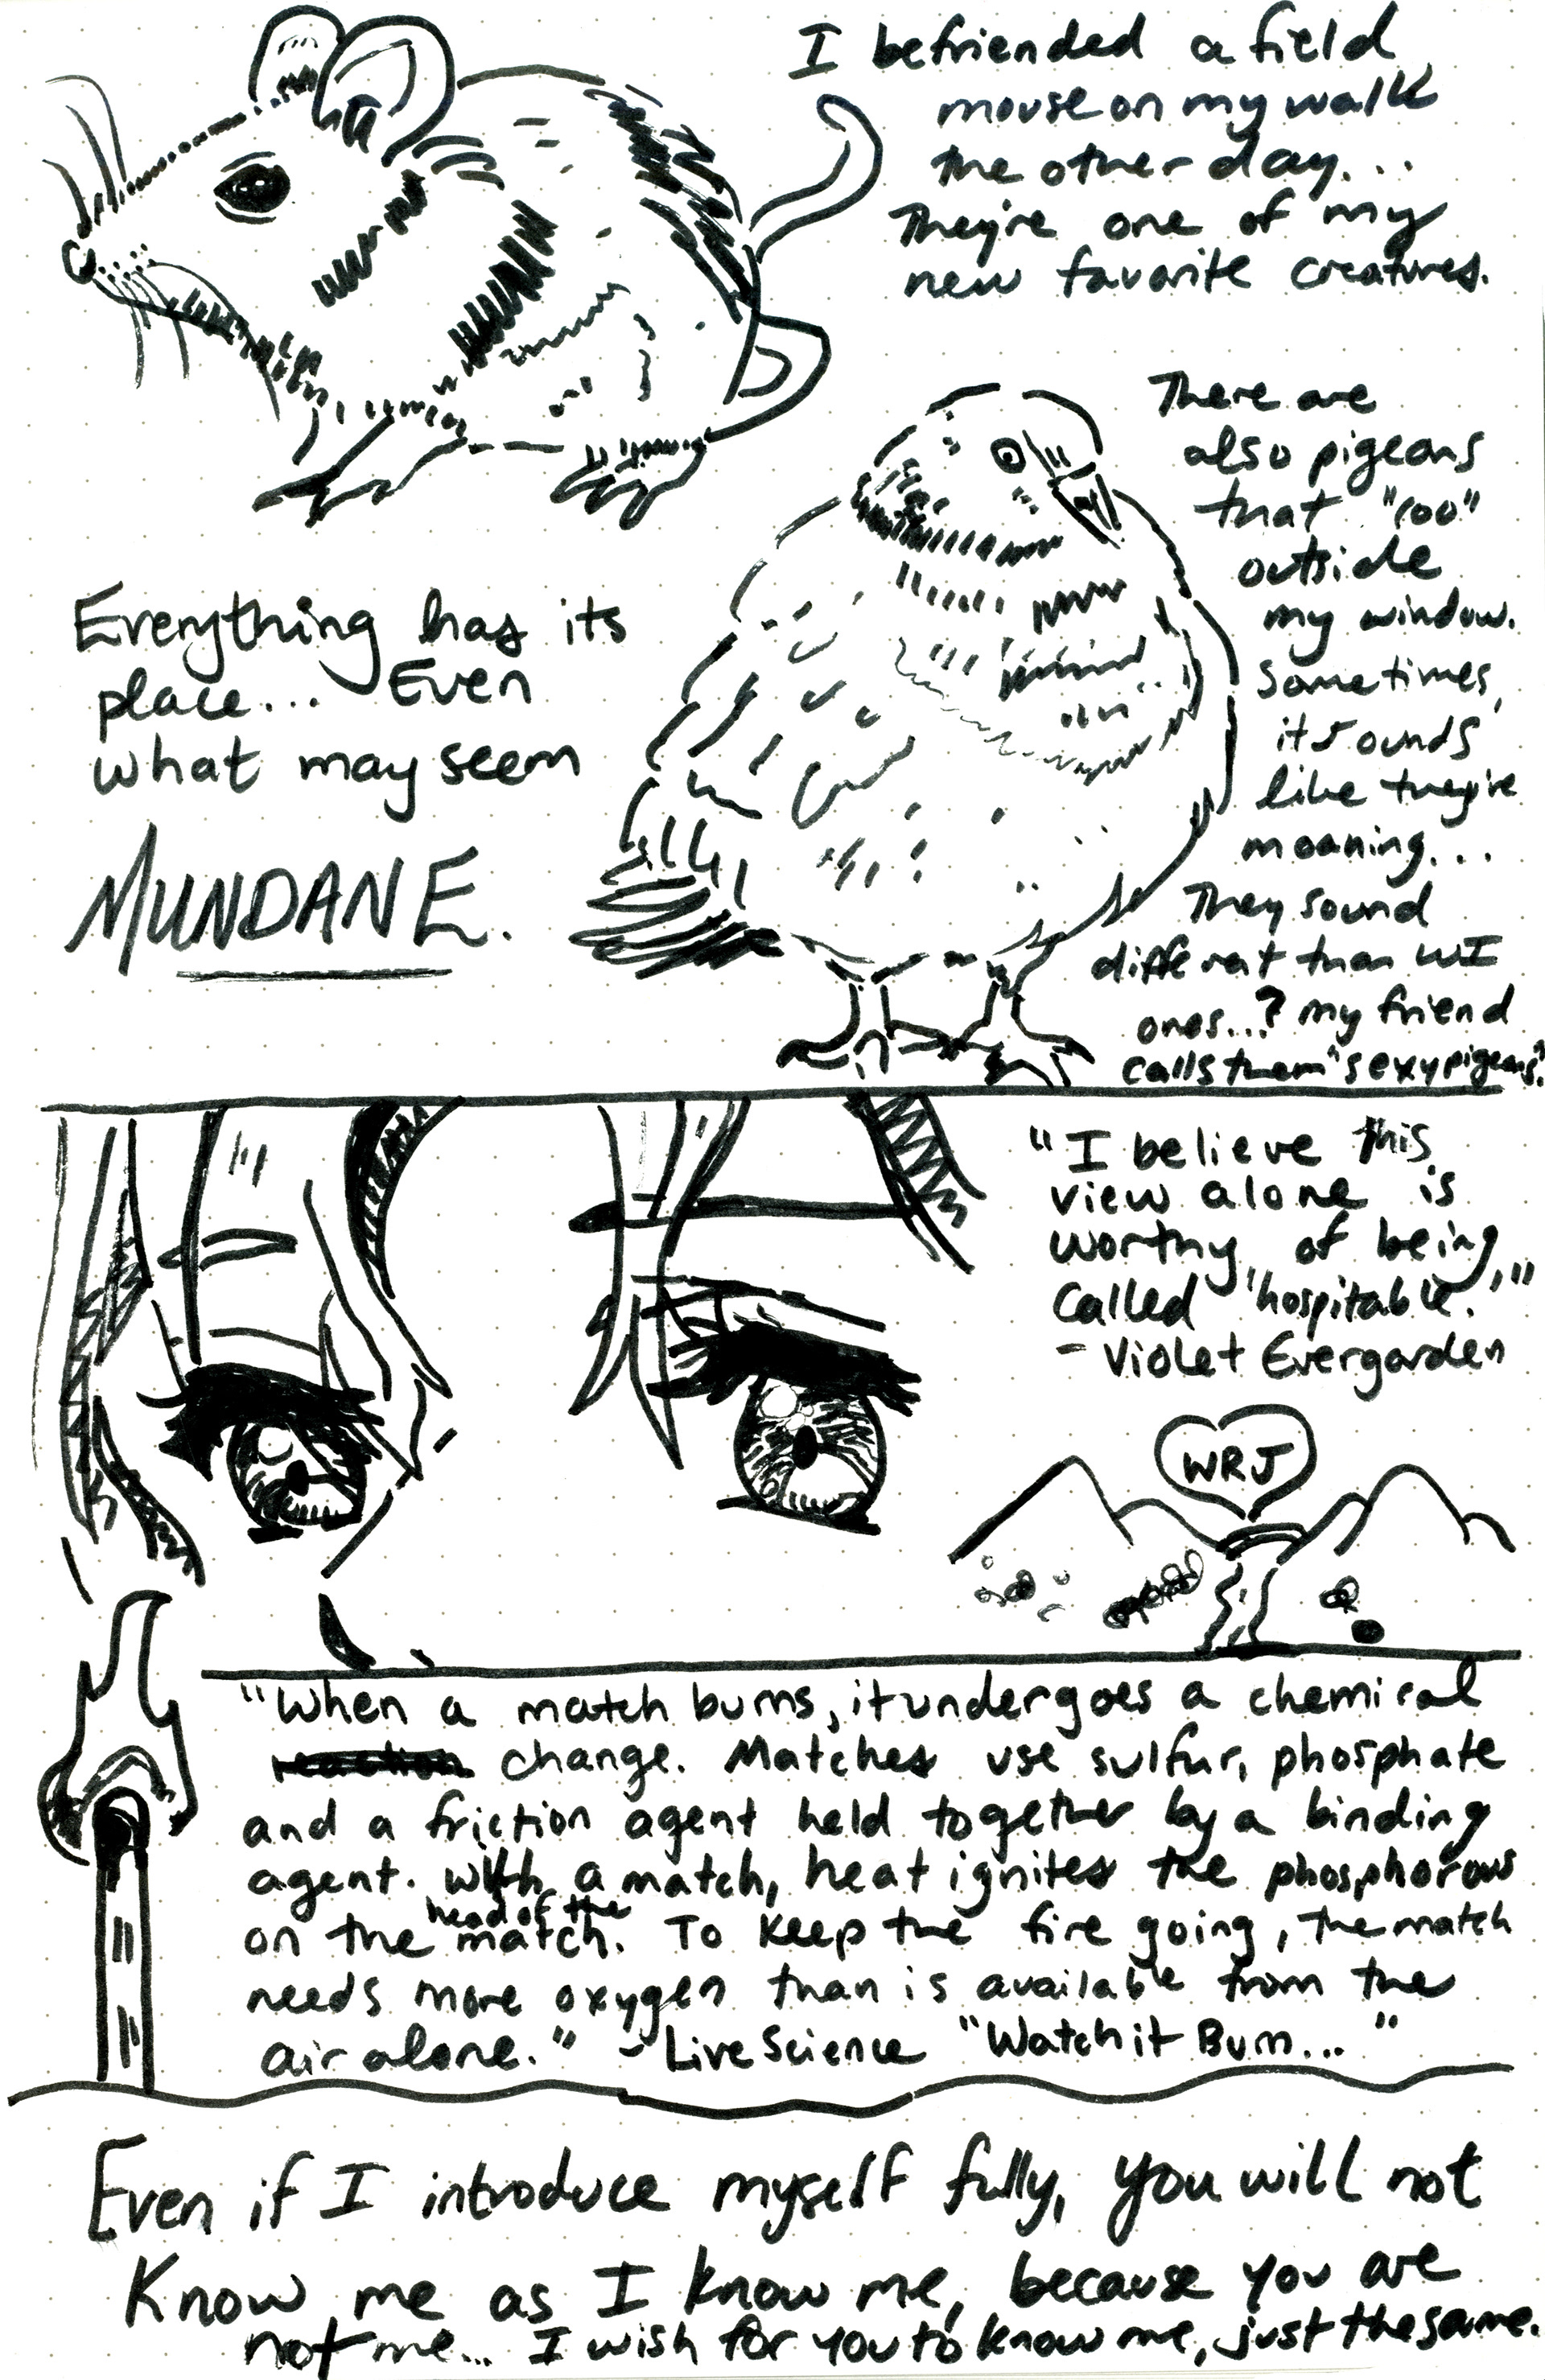 I befriended a field
mouse on my walk
the other day...
They're one of my
new favorite creatures.
There are
also pigeons
that "coo"
outside
my window.
Sometimes,
it sounds
like they're
moaning...
They sound
different than WI
ones...? My friend
calls them "sexy pigeons".
Everything has its
place... Even
what may seem
MUNDANE.
"I believe this
view alone is
worthy of being
called 'hospitable.'"
- Violet Evergarden
WRJ
"When a match burns, it undergoes a chemical
reaction change. Matches use sulfur, phosphate
and a friction agent held together by a binding
agent. With a match, heat ignites the phosphorous
on the head of the match. To keep the fire going, the match
needs more oxygen than is available from the
air alone." - Live Science "Watch it Burn..."
Even if I introduce myself fully, you will not
know me as I know me, because you are
not me... I wish for you to know me, just the same.